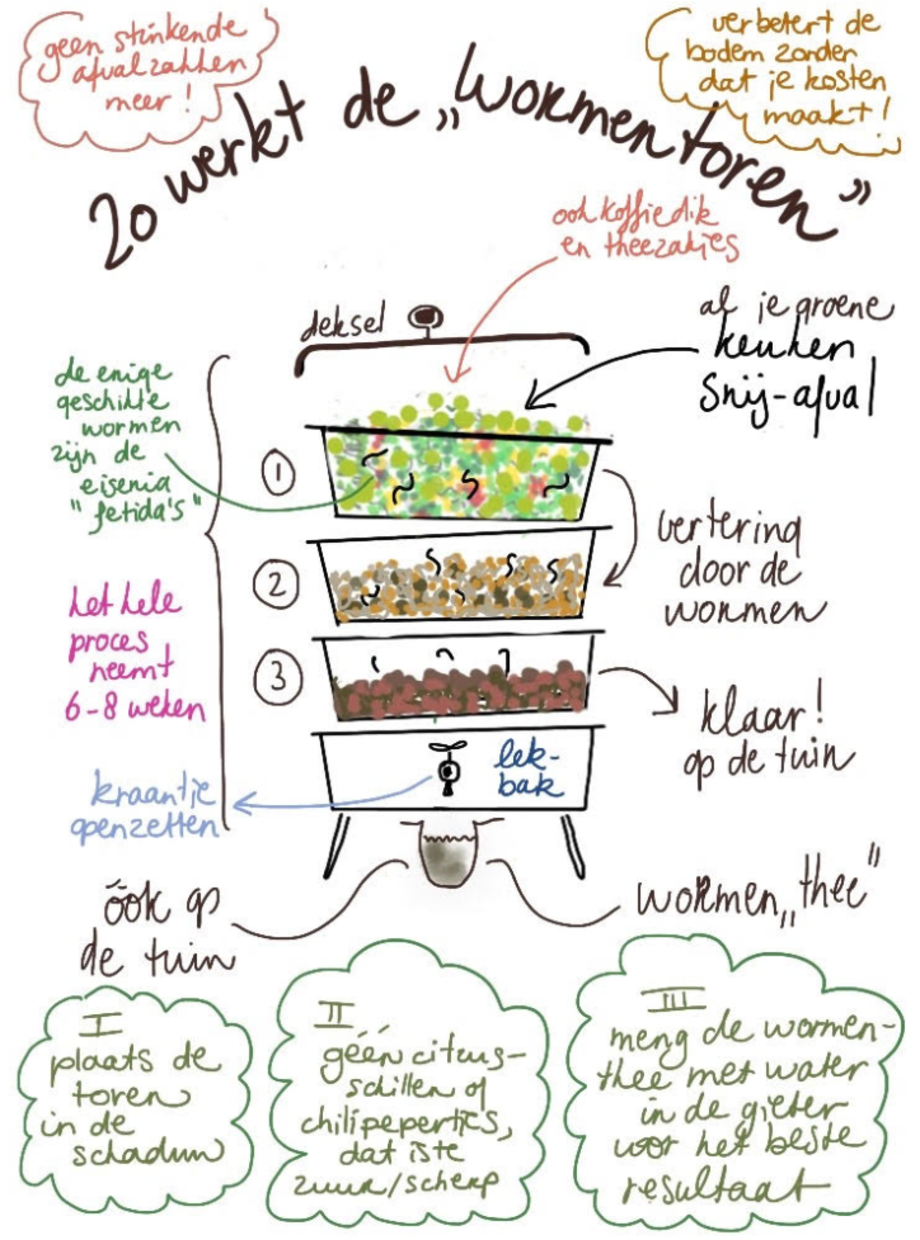 geen stinkende
afvalzakken
meer!
verbetert de
bodem zonder
dat je kosten
maakt!
Zo werkt de „wormentoren”
ook koffiedik
en theezakjes
deksel
al je groene
keuken
snij-afval
de enige
geschikte
wormen
zijn de
eisenia
"fetida's"
1
vertering
door de
wormen
2
het hele
proces
neemt
6-8 weken
3
klaar!
op de tuin
lek-
bak
kraantje
openzetten
óók op
de tuin
wormen„thee”
I
plaats de
toren
in de
schaduw
II
géén citrus-
schillen of
chilipepertjes,
dat is te
zuur/scherp
III
meng de wormen-
thee met water
in de gieter
voor het beste
resultaat